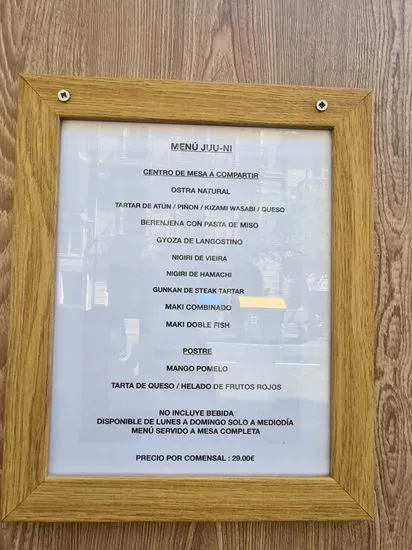 MENÚ JUU-NI
CENTRO DE MESA A COMPARTIR
OSTRA NATURAL
TARTAR DE ATÚN / PIÑON / KIZAMI WASABI / QUESO
BERENJENA CON PASTA DE MISO
GYOZA DE LANGOSTINO
NIGIRI DE VIEIRA
NIGIRI DE HAMACHI
GUNKAN DE STEAK TARTAR
MAKI COMBINADO
MAKI DOBLE FISH
POSTRE
MANGO POMELO
TARTA DE QUESO / HELADO DE FRUTOS ROJOS
NO INCLUYE BEBIDA
DISPONIBLE DE LUNES A DOMINGO SOLO A MEDIODÍA
MENÚ SERVIDO A MESA COMPLETA
PRECIO POR COMENSAL : 29.00€